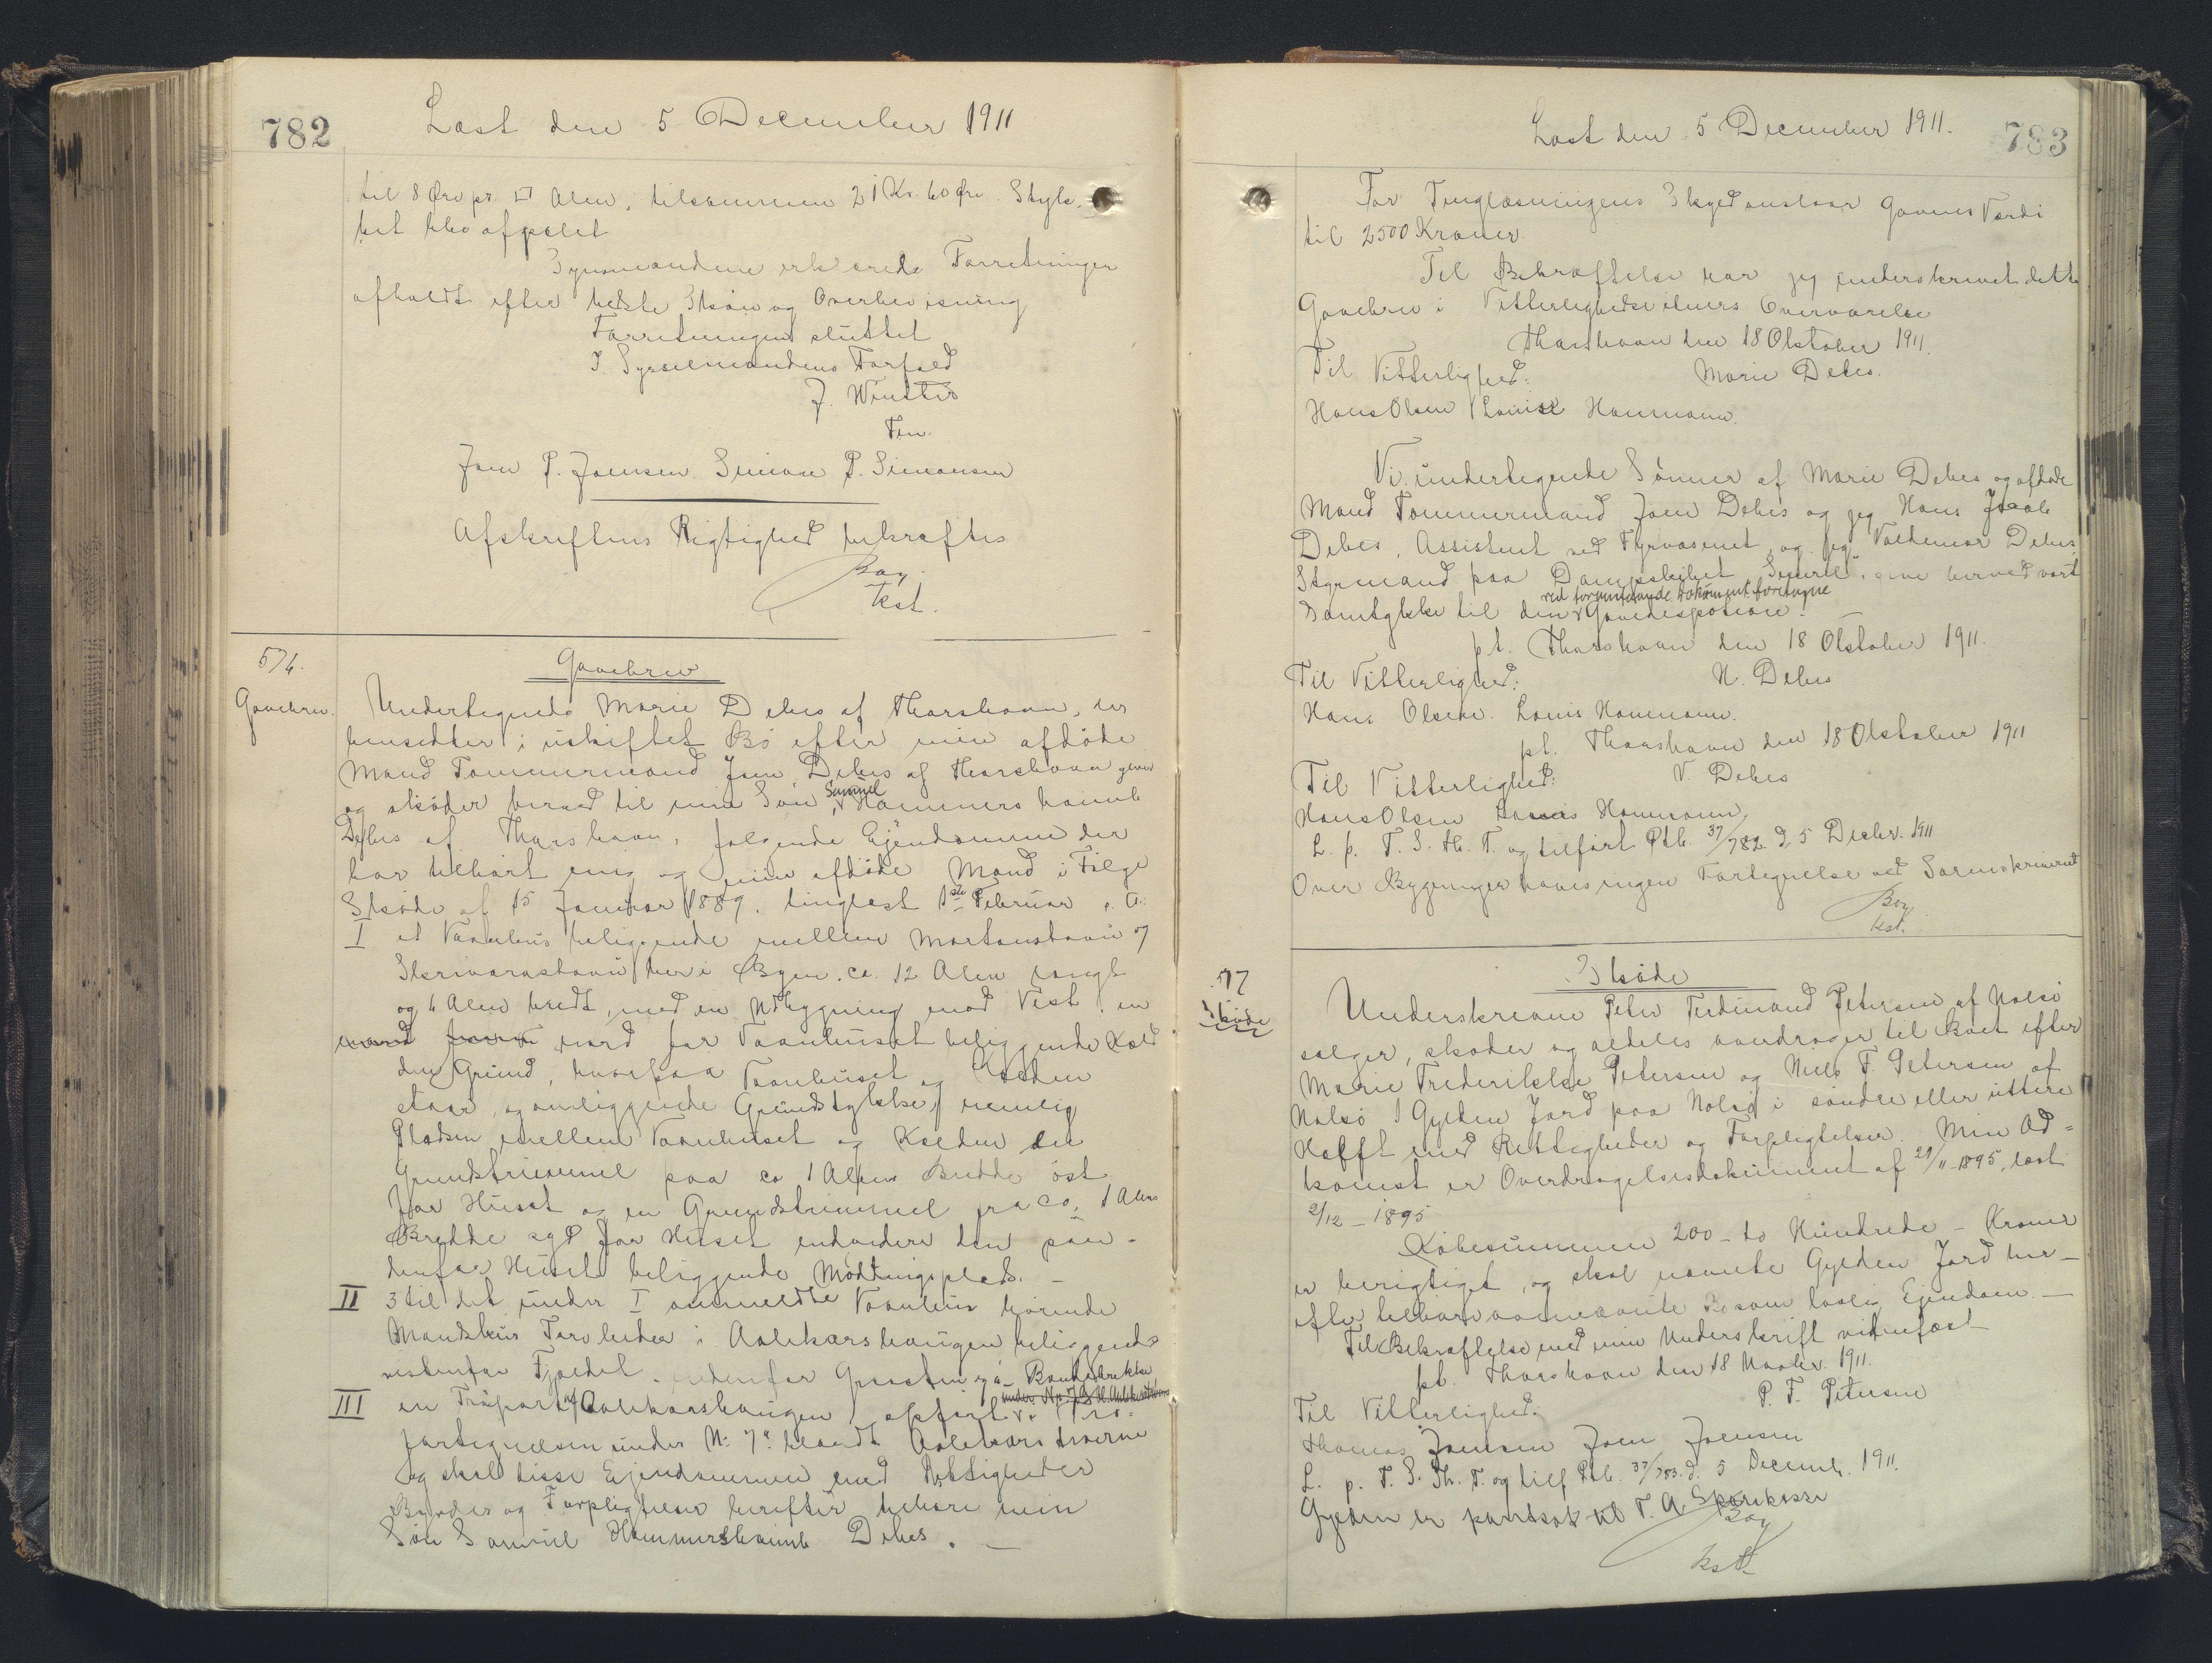 782
Læst den 5 December 1911
til 8 Øre pr. □ Alen, tilsammen 21 Kr. 60 Øre. Styk-
ket blev afpælet
Synsmændene erklærede Forretningen
afholdt efter bedste Skøn og Overbevisning
Forretningen sluttet
I Sysselmandens Forfald
J. Winther
Fm.
Joen P. Joensen. Simon P. Simonsen
Afskriftens Rigtighed bekræftes
Bay
kst.
576.
Gavebrev.
Gavebrev
Undertegnede Marie Debes af Thorshavn, der
hensidder i uskiftet Bo efter min afdøde
Mand Tømmermand Joen Debes af Thorshavn giver
og skøder herved til min Søn Samuel Hammershaimb
Debes af Thorshavn, følgende Ejendomme der
har tilhørt mig og min afdøde Mand i Følge
Skøde af 15 Januar 1889, tinglæst 1ste Februar s. A:
I et Vaanhus beliggende mellem Mortenstovu og
Skrivarastovu her i Byen, ca. 12 Alen langt
og 6 Alen bredt, med en Udbygning mod Vest, en
nord for Vaanhuset beliggende Kæld
den Grund, hvorpaa Vaanhuset og Kælden
staar, og omliggende Grundstykker, nemlig
Pladsen mellem Vaanhuset og Kælden en
Grundstrimmel paa ca 1 Alens Bredde øst
for Huset og en Grundstrimmel paa ca. 1 Alens
Bredde syd for Huset endvidere den søn-
denfor Huset beliggende Møddingsplads. -
II 3 til det under I ommeldte Vaanhus hørende
Mandshus Tørvleder i Aalekærshaugen beliggende
vestenfor Fjældet, nedenfor Bøndebrekke
III en Trøpart i Aalekærshaugen opført i Trø-
fortegnelsen under No 7a blandt Aalekærs trøerne
og skal disse Ejendomme med Rettigheder
Byrder og Forpligtelser herefter tilhøre min
Søn Samuel Hammershaimb Debes. -
783
Læst den 5 December 1911.
For Tinglæsningens Skyld anslaar Gavens Værdi
til 2500 Kroner.
Til Bekræftelse har jeg underskrevet dette
Gavebrev i Vitterlighedsvidners Overværelse
Thorshavn den 18 Oktober 1911.
Til Vitterlighed: Marie Debes.
Hans Olsen Louis Hammann.
Vi undertegnede Sønner af Marie Debes og afdøde
Mand Tømmermand Joen Debes og jeg Hans Jacob
Debes, Assistent ved Fyrvæsenet og jeg Valdemar Debes,
Styrmand paa Dampskibet "Smiril", give herved vort
ved foranstaaende Dokument foretagne
Samtykke til den Gavedisposition. -
pt. Thorshavn den 18 Oktober 1911.
Til Vitterlighed: H. Debes
Hans Olsen. Louis Hammann.
pt. Thorshavn den 18 Oktober 1911
Til Vitterlighed: V. Debes
Hans Olsen Louis Hammann
L. p. T. S. Th. T. og tilført Ptb. 37/782 d. 5 Decbr. 1911
Over Bygninger haves ingen Fortegnelse ved Sorenskriveriet
Bay
kst.
577
Skøde
Skøde
Underskrevne Peter Ferdinand Petersen af Nolsø
sælger, skøder og aldeles overdrager til Boet efter
Marie Frederikke Petersen og Niels F. Petersen af
Nolsø 1 Gylden Jord paa Nolsø i søndre eller uttere
Helft med Rettigheder og Forpligtelser. Min Ad-
komst er Overdragelsesdokument af 29/11 1895, læst
2/12 - 1895
Købesummen 200 - to Hundrede - Kroner
er berigtiget, og skal nævnte Gylden Jord her-
efter tilhøre ovennævnte Bo som lovlig Ejendom. -
Til Bekræftelse med min Underskrift vidnefast
pt. Thorshavn den 18 Novbr. 1911.
Til Vitterlighed: P. F. Petersen
Thomas Joensen Joen Joensen
L. p. T. S. Th. T. og tilf Ptb. 37/783. d. 5 Decemb. 1911.
Gylden er pantsat til F. A. Sparekasse
Bay
kst.